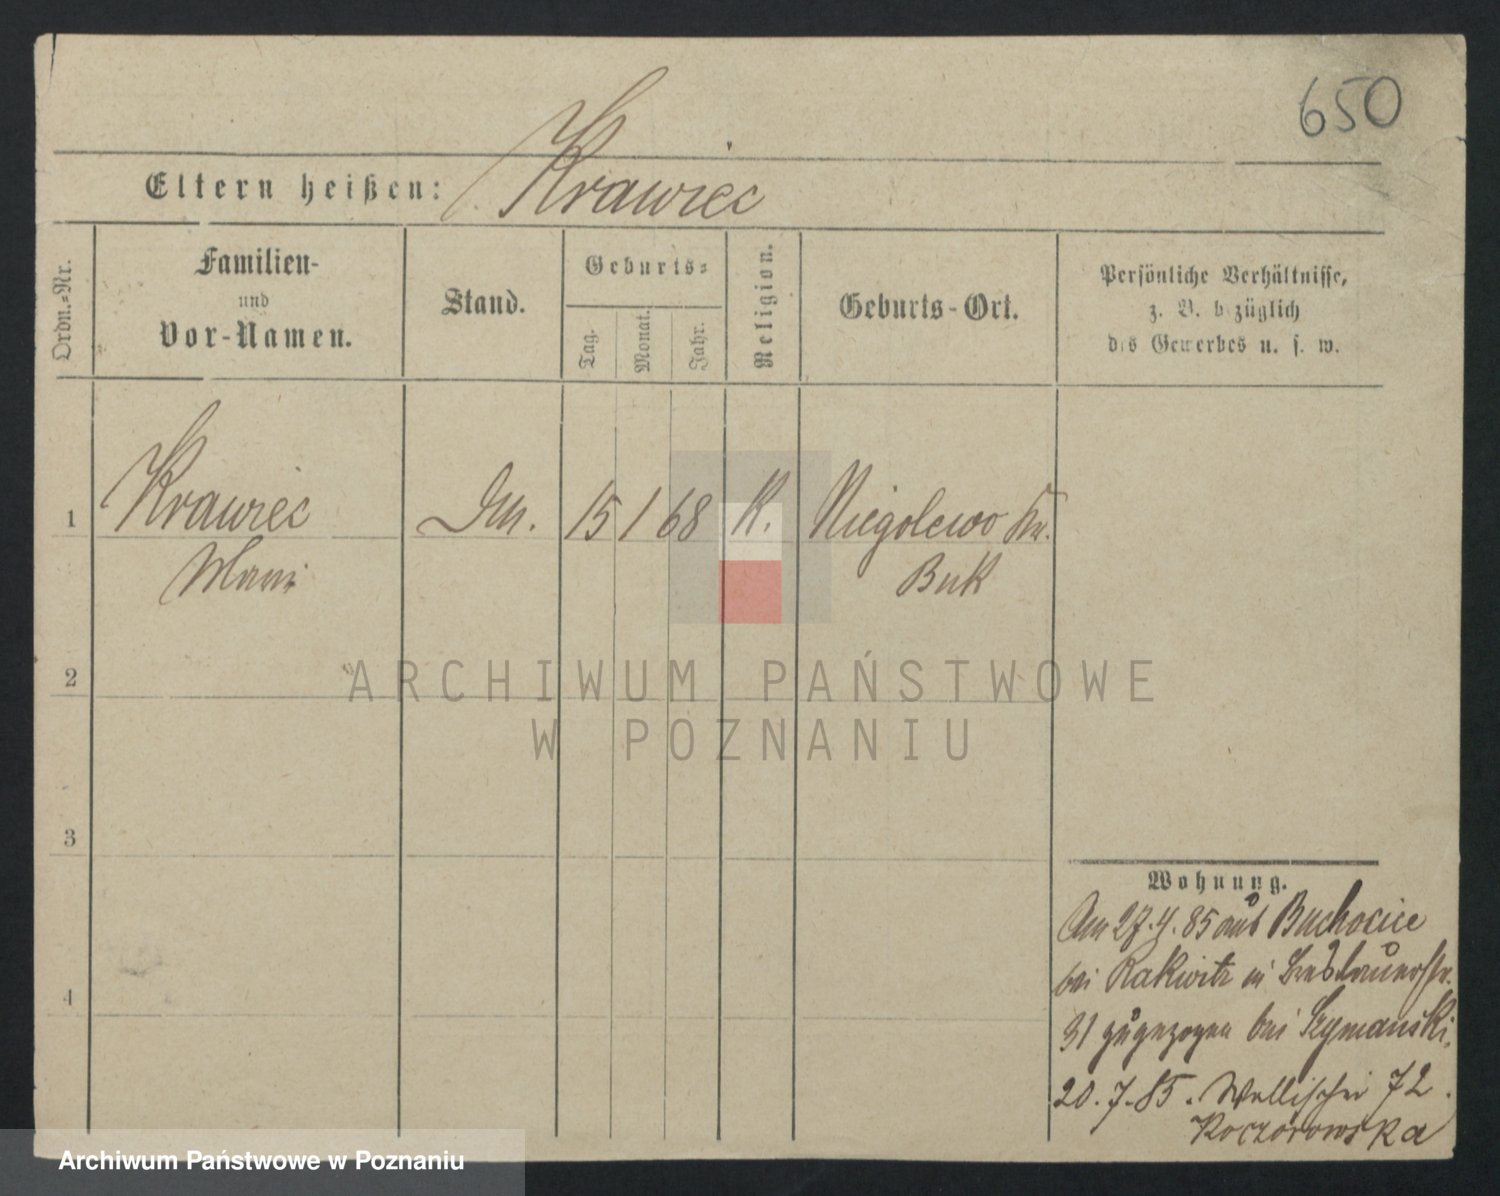 650
Eltern heißen: Krawiec
Ordn.=Nr.
Familien-
und
Vor-Namen.
Stand.
Geburts=
Tag.
Monat.
Jahr.
Religion.
Geburts-Ort.
Persönliche Verhältnisse,
z. B. bezüglich
des Gewerbes u. s. w.
1 Krawiec 15 1 68 K. Niegolewo Kr.
Buk
2
3
4
Wohnung.
Am 27.4.85 aus Buchocice
bei Rakwitz in Breslauerstr.
31 zugezogen bei Szymanski.
20.7.85. Wallischei 72.
Koczorowska
ARCHIWUM PAŃSTWOWE
W POZNANIU
Archiwum Państwowe w Poznaniu